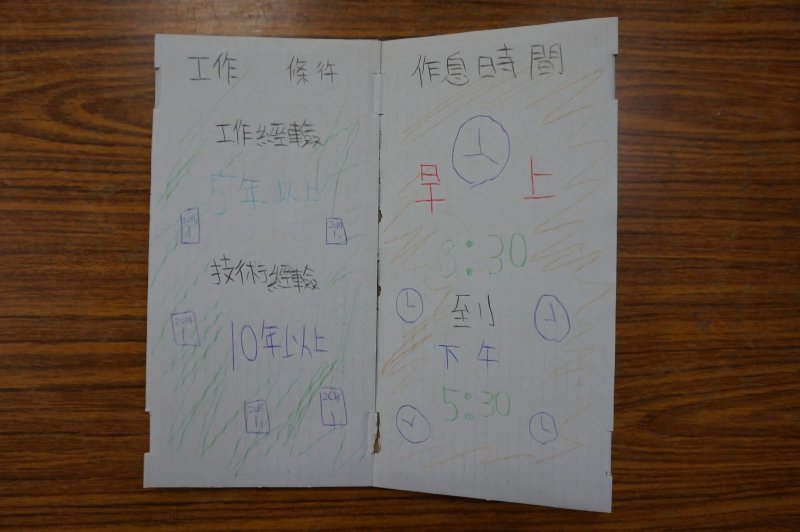 工作 條件
工作經驗
5年以上
技術經驗
10年以上
作息時間
早 上
8:30
到
下午
5:30